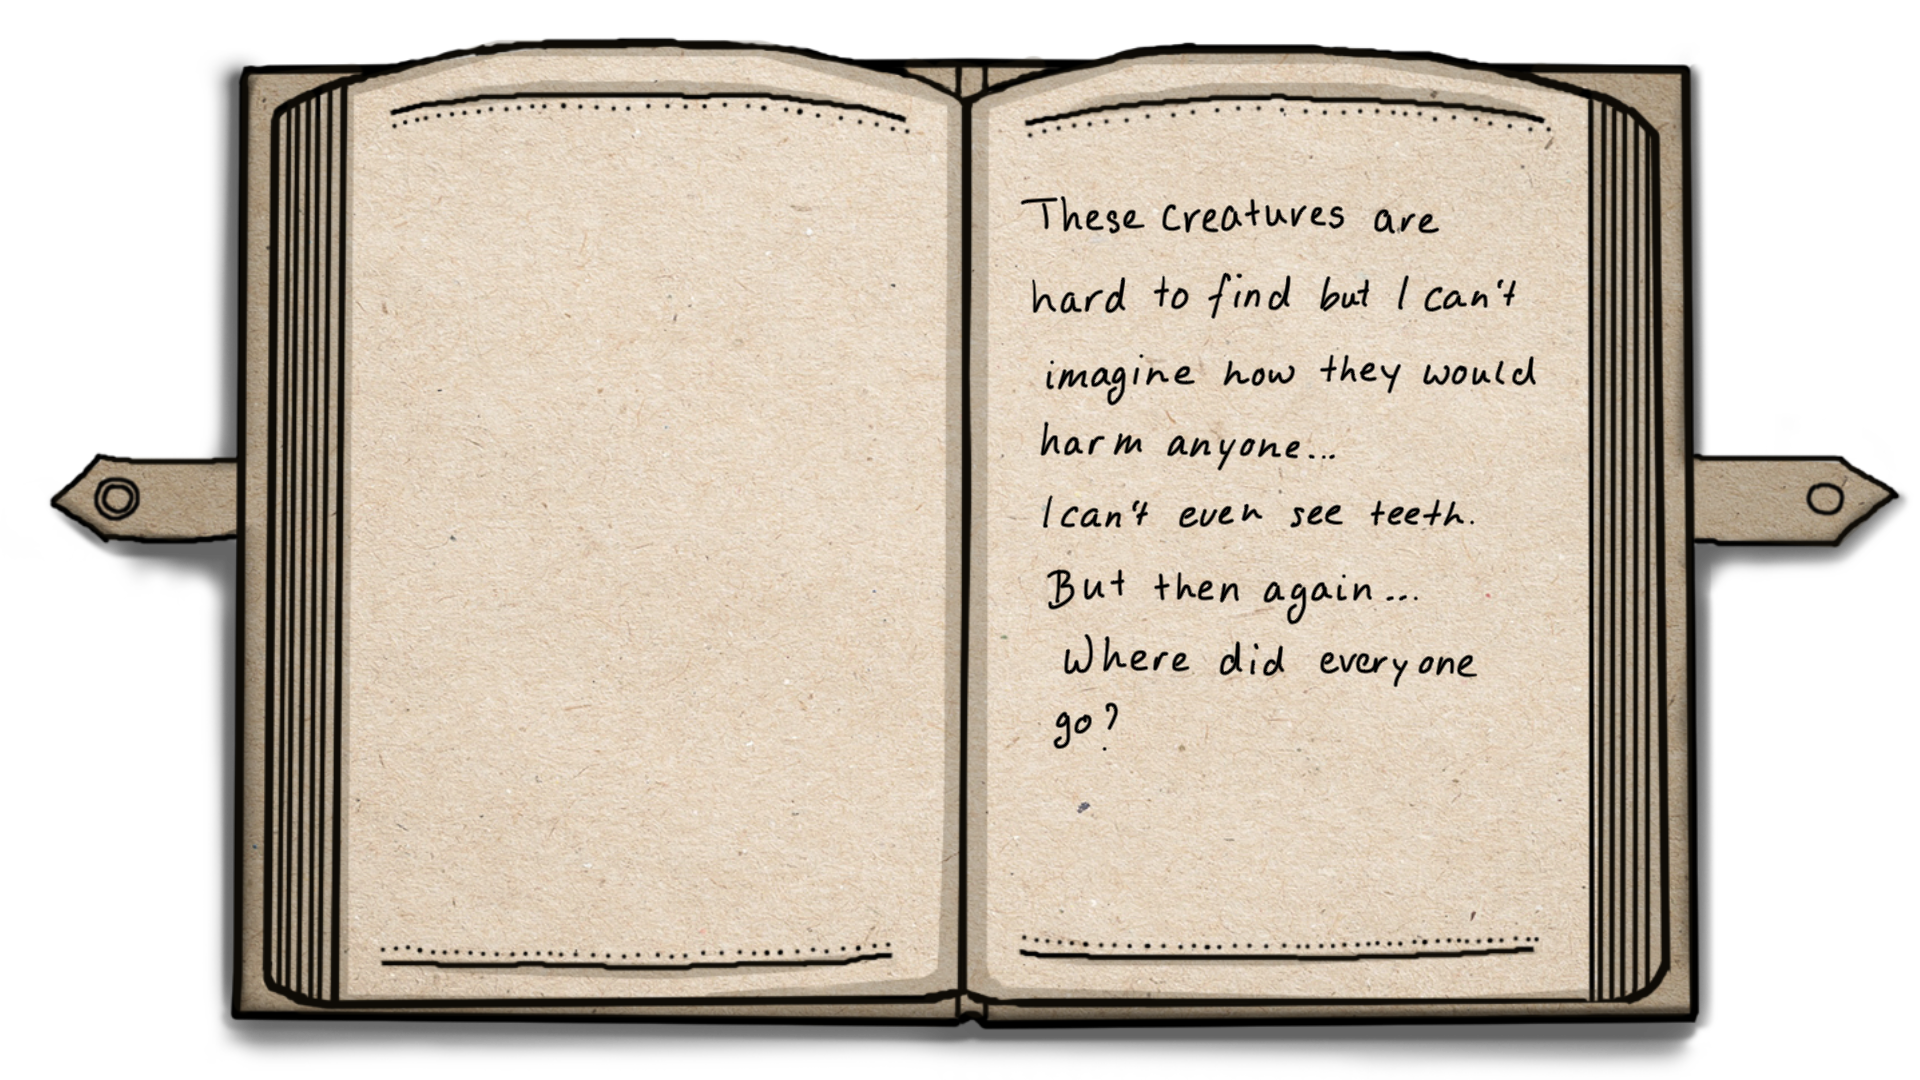 These creatures are
hard to find but I can't
imagine how they would
harm anyone...
I can't even see teeth.
But then again...
Where did everyone
go?